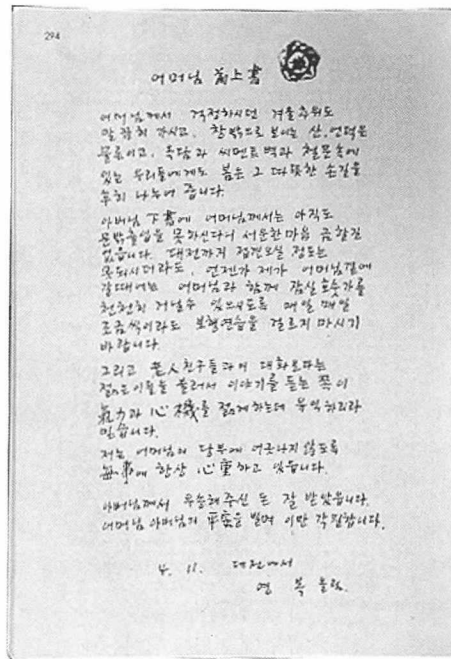 294
어머님 前上書
어머님께서 걱정하시던 겨울추위도
말끔히 가시고, 창밖으로 보이는 산, 언덕은
물론이고, 옥담과 씨멘트벽과 철문속에
있는 우리들에게도 봄은 그 따뜻한 손길을
나누어 줍니다.
아버님 下書에 어머님께서는 아직도
문밖출입을 못하신다니 서운한마음 금할길
없습니다. 대전까지 접견오실 정도는
못되시더라도, 언젠가 제가 어머님곁에
갈때에는 어머님과 함께 잠실 호숫가를
천천히 거닐수 있으시도록 매일 매일
조금씩이라도 보행연습을 거르지 마시기
바랍니다.
그리고 老人친구들과의 대화보다는
젊은이들을 불러서 이야기를 듣는 쪽이
氣力과 心機를 젊게하는데 유익하리라
믿습니다.
저는 어머님의 당부에 어긋나지않도록
每事에 항상 心重하고 있읍니다.
아버님께서 우송해주신 돈 잘 받았읍니다.
어머님 아버님의 平安을 빌며 이만 각필합니다.
4. 11. 대전에서
영 복 올림.